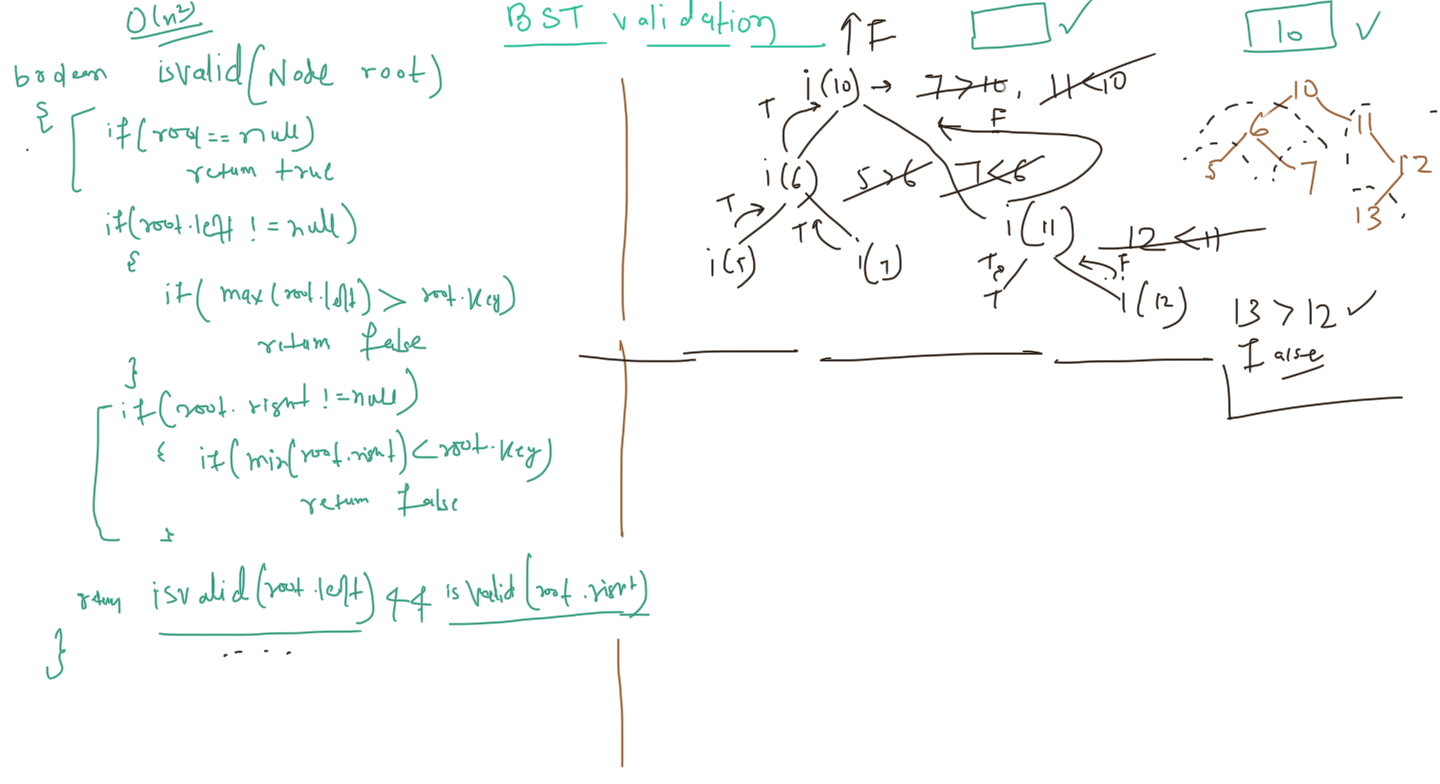 O(n²)
BST validation
boolean isvalid(Node root)
{
if(root == null)
return true
if(root.left != null)
{
if( max(root.left) > root.key)
return false
}
if(root.right != null)
{ if(min(root.right) < root.key)
return false
}
return isvalid(root.left) && isvalid(root.right)
}
↑F
i(10) → 7>10, 11<10
T
F
i(6) 5>6 7<6
T
T
i(5)
i(7)
i(11) 12<11
T
F
T
i(12)
13 > 12 ✓
False
✓
10 ✓
10
6
11
5
7
12
13